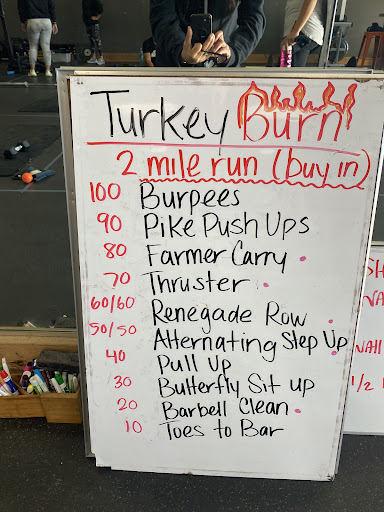 Turkey Burn
2 mile run (buy in)
100 Burpees
90 Pike Push Ups
80 Farmer Carry
70 Thruster
60/60 Renegade Row
50/50 Alternating Step Up
40 Pull Up
30 Butterfly Sit up
20 Barbell Clean
10 Toes to Bar
1/2